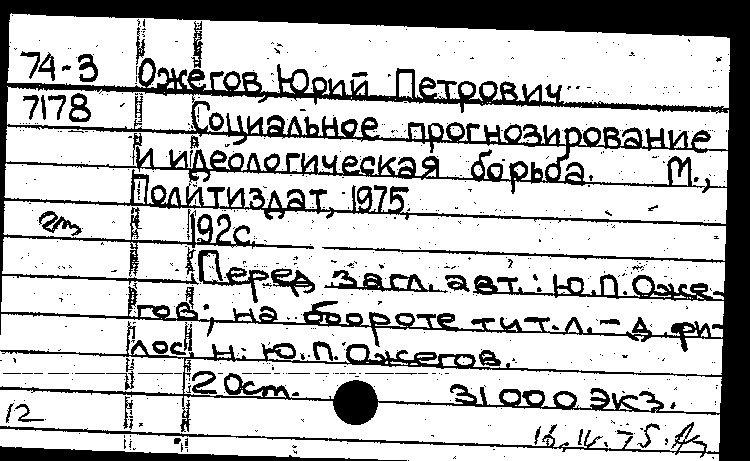 74-3 Ожегов, Юрий Петрович
7178 Социальное прогнозирование
и идеологическая борьба. М.,
Политиздат, 1975.
192с.
Перед загл. авт.: Ю.П. Оже-
гов; на обороте тит. л. - д. фи-
лос. н. Ю.П. Ожегов.
20 ст. 31000 экз.
12 16.IV.75.